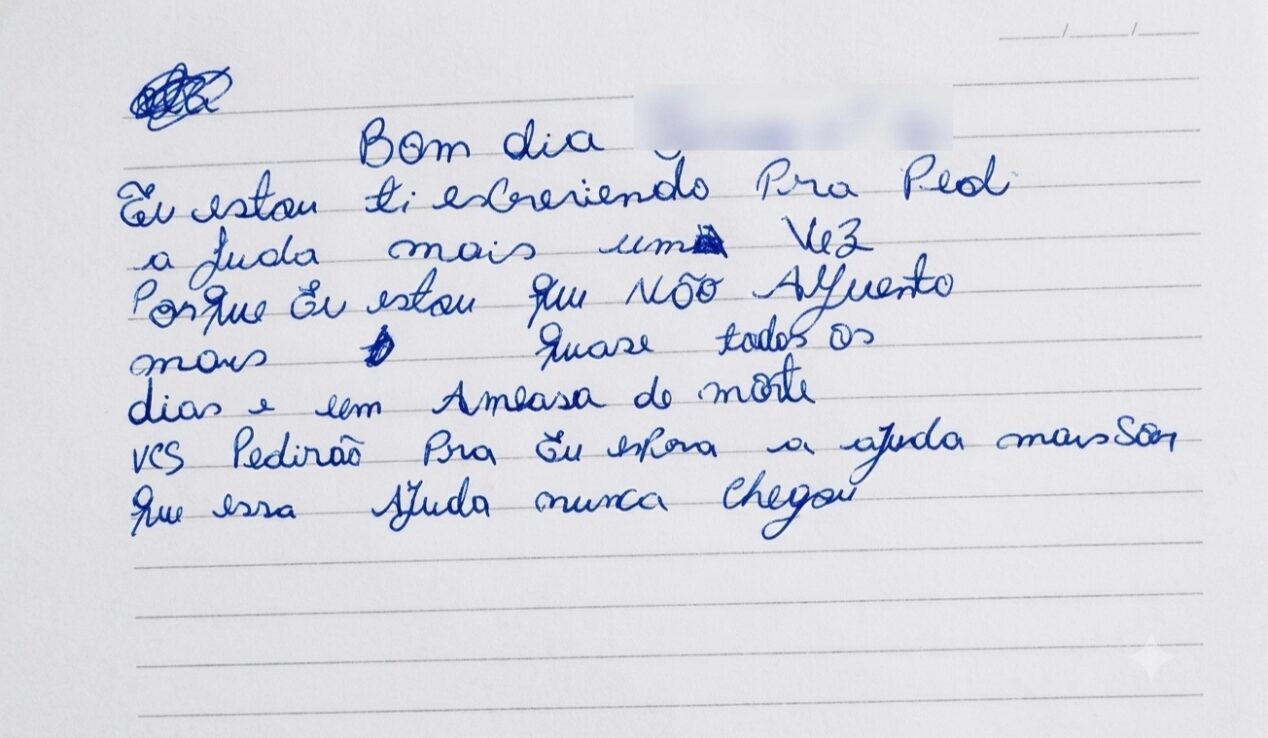 Bom dia
Eu estou ti escreviendo Pra Ped
a Juda mais um Vez
Porque Eu estou que NÃO AJuento
mais quase todos os
dias e um Ameasa de morte
vcs Pedirão Pra Eu espera a ajuda mais Son
que essa AJuda nunca chegou